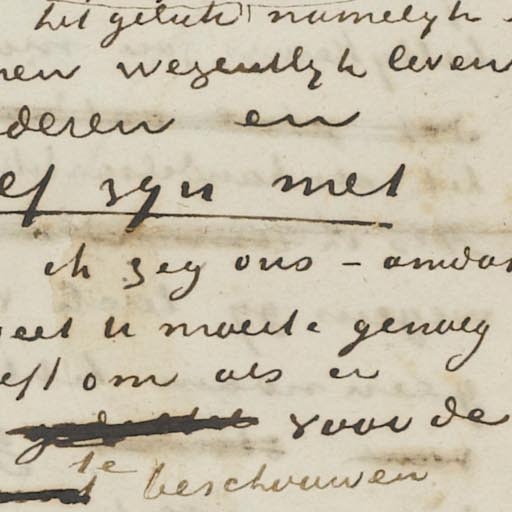 het geluk namelyk
wezentlyk leven
deren en
ef zyn met
ik zeg ons - omdat
eet u moeite genoeg
eft om als er
voor de
te
beschouwen